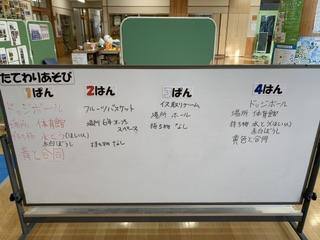 たてわりあそび
1ぱん
ドッジボール
場所 体育館
持ち物 水とう(ほしい人)
赤白ぼうし
黄と合同
2はん
フルーツバスケット
場所 6年オープン
スペース
持ち物 なし
3ぱん
イス取りゲーム
場所 ホール
持ち物 なし
4はん
ドッジボール
場所 体育館
持ち物 水とう(ほしい人)
赤白ぼうし
黄色と合同